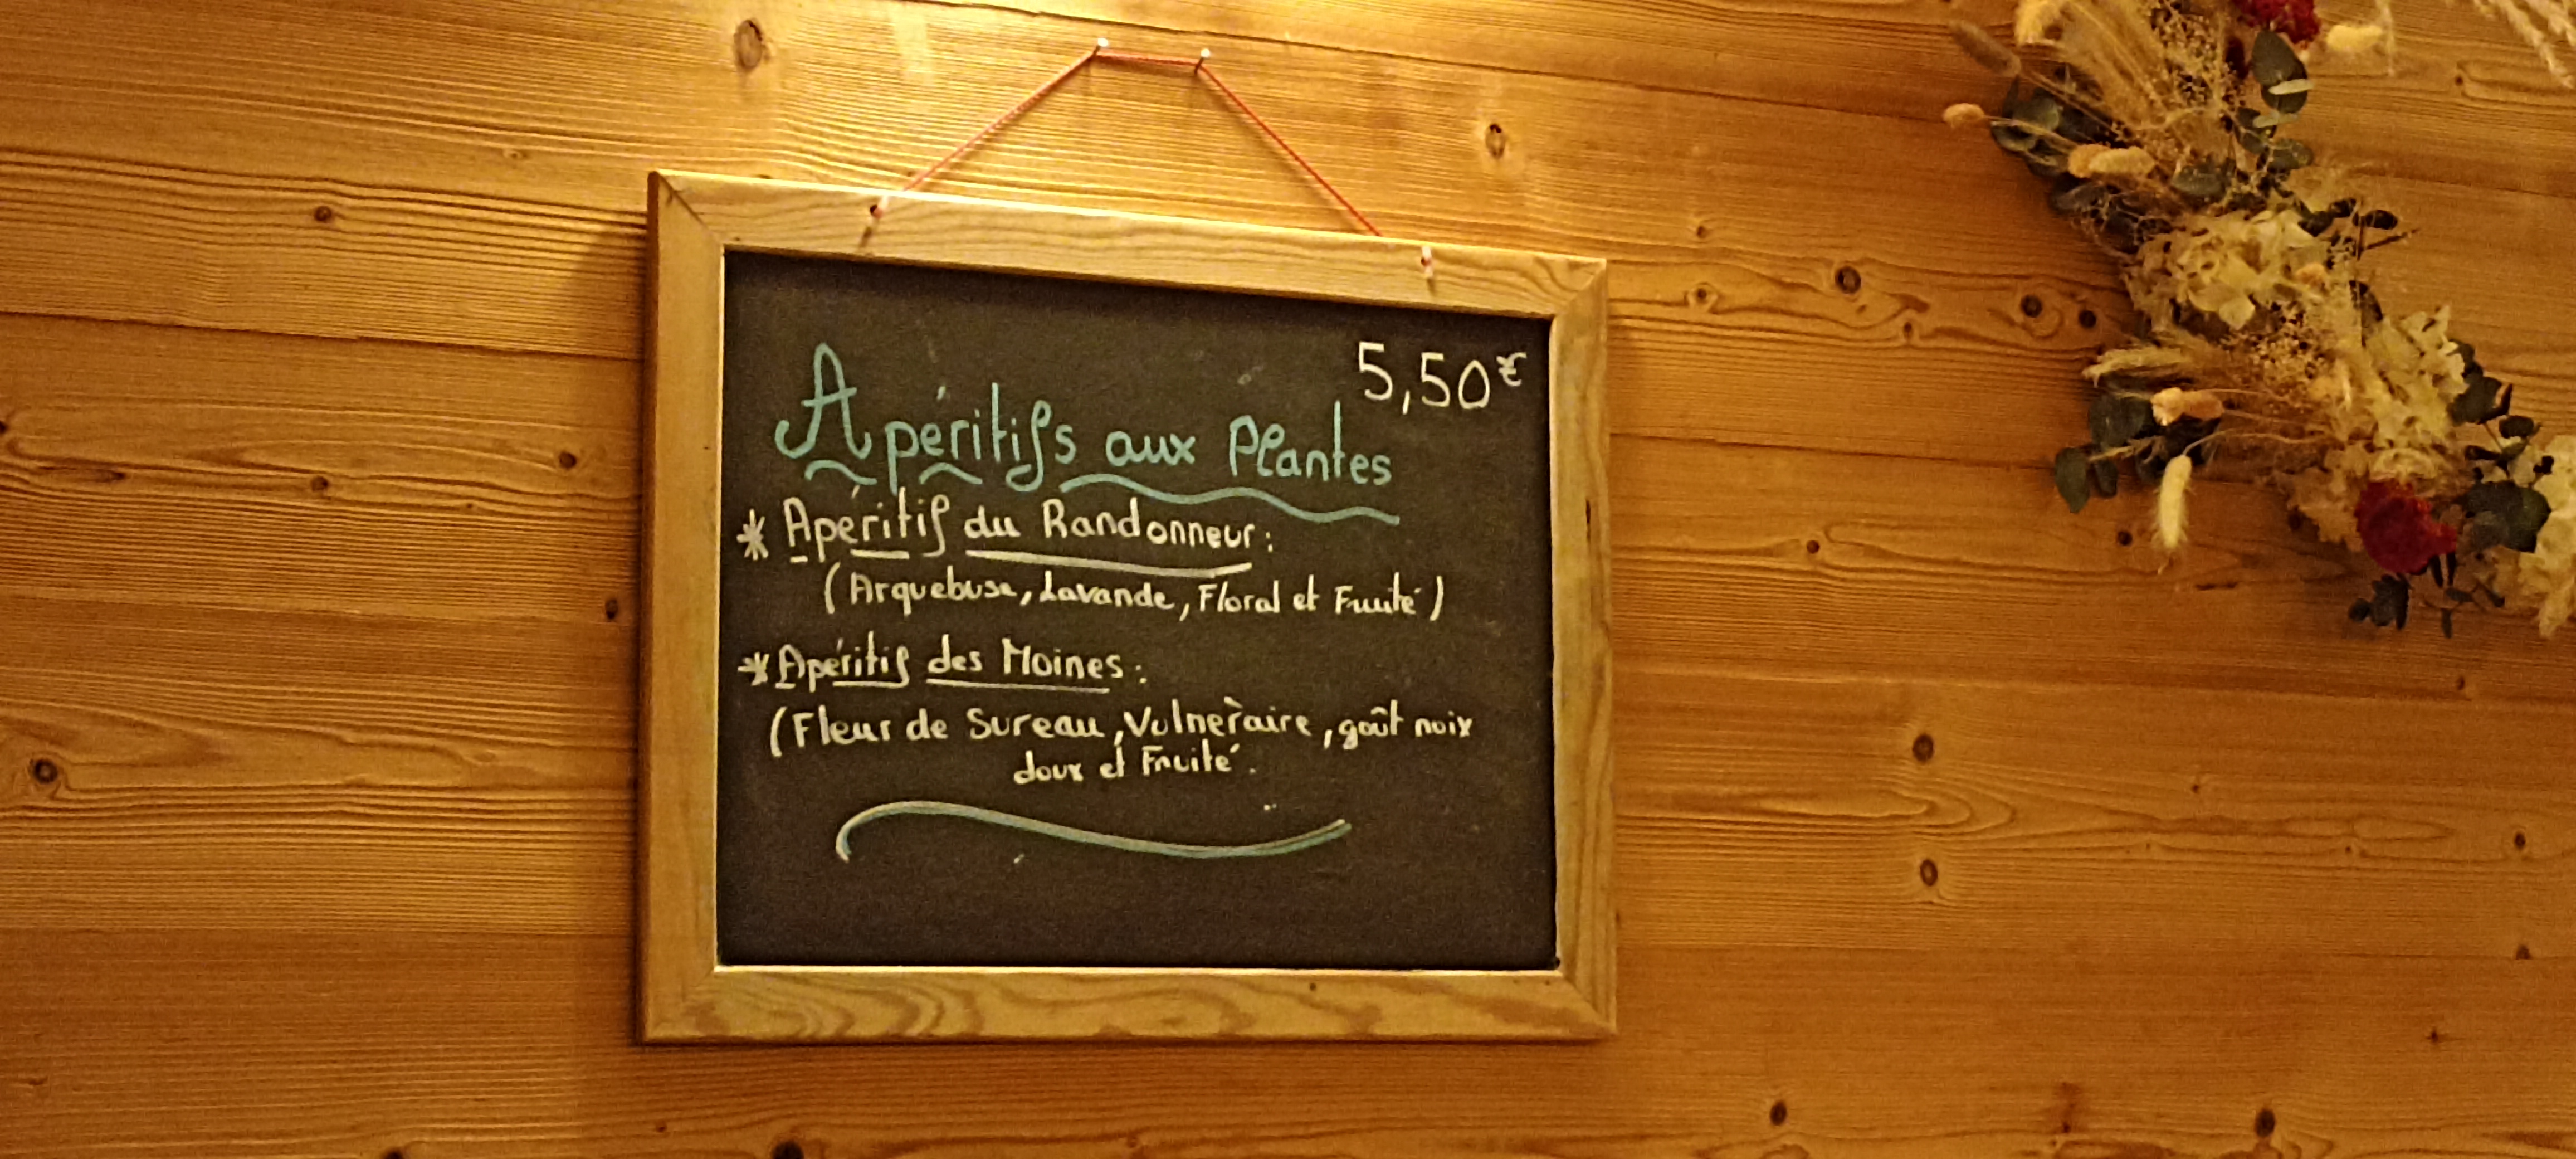 5,50€
Apéritifs aux Plantes
* Apéritif du Randonneur :
(Arquebuse, Lavande, Floral et Fruité)
* Apéritif des Moines :
(Fleur de Sureau, Vulneràire, goût noix
doux et Fruité.